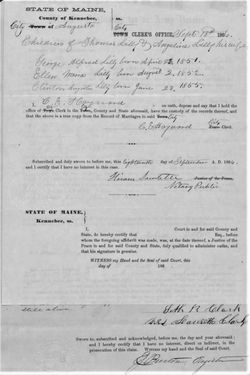 STATE OF MAINE,
County of Kennebec, ss.
City Town of Augusta
City TOWN CLERK'S OFFICE, Sept 18th 186
Children of Thomas Lilly & Angeline Lilly
George Alfred Lilly born April 1851.
Ellen Lilly born August 2, 1852
Clinton Lilly born June 23, 1855.
I, C. E. Hayward on oath, depose and say that I hold the
office of Town Clerk in the Town, County and State aforesaid, have the custody of the records thereof, and
that the above is a true copy from the Record of Marriages in said Town
C. E. Hayward
Town Clerk.
Subscribed and duly sworn to before me, this eighteenth day of September A. D. 186
and I certify that I have no interest in this case.
Hiram
Justice of the Peace.
Notary Public
STATE OF MAINE,
Kennebec, ss.
I, Court in and for said County and
State, do hereby certify that Esq., before
whom the foregoing affidavit was made, was, at the date thereof, a Justice of the
Peace in and for said County and State, duly qualified to administer oaths, and
that his signature is genuine.
WITNESS my Hand and the Seal of said Court, this
day of 186
Seth R Clark
Clark
Sworn to, subscribed and acknowledged, before me, the day and year aforesaid;
and I hereby certify that I have no interest, direct or indirect, in the
prosecution of this claim. Witness my hand and official Seal.